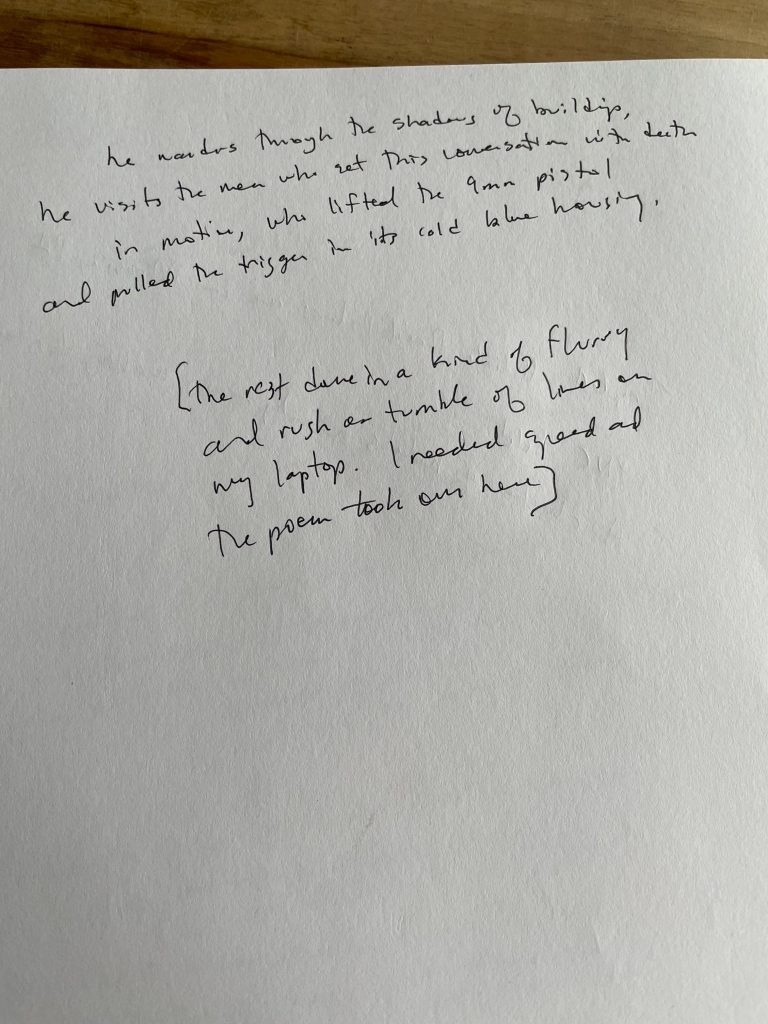 he wanders through the shadows of buildings,
he visits the men who set this conversation with death
in motion, who lifted the 9mm pistol
and pulled the trigger in its cold blue housing.
[the rest done in a kind of flurry
and rush or tumble of lines on
my laptop. I needed speed and
the poem took over here]